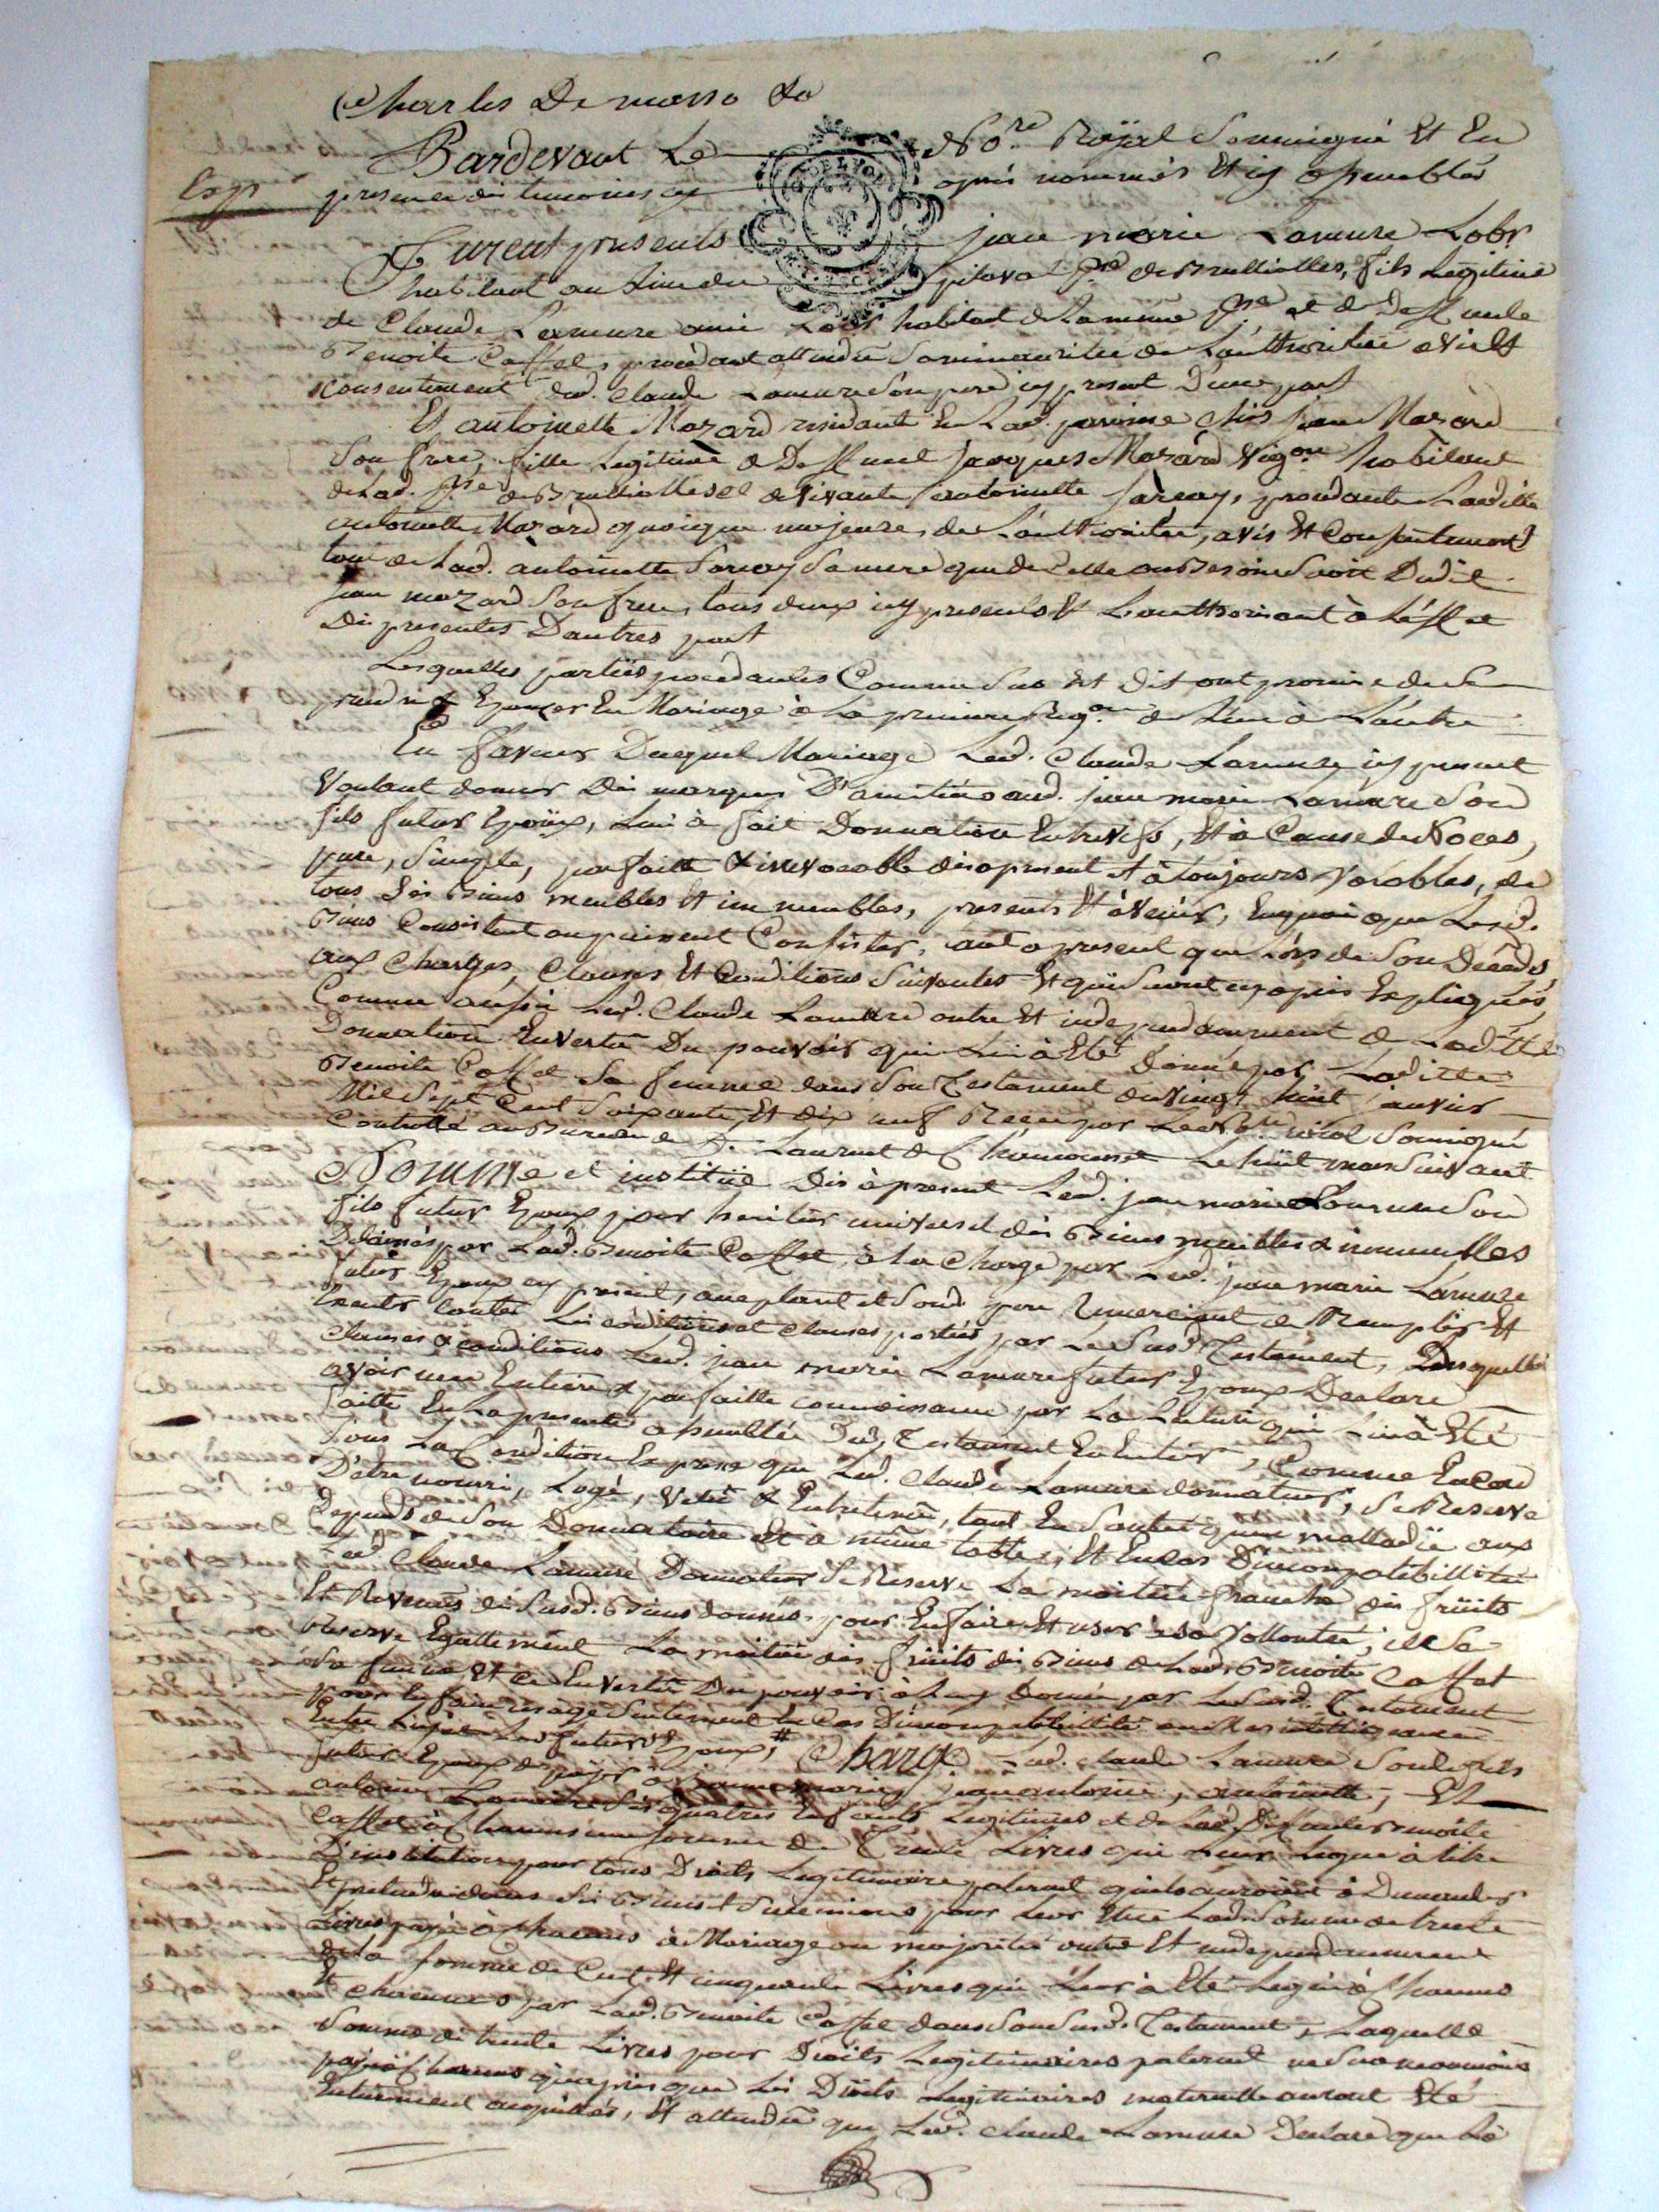 Charles De masso &a
Pardevant Le No.re Royal Soussigné Et En
Exp.
presence des temoins cy apres nommés Et icy assemblés
Furent presents jean marie Lamure Labr
habitant au lieu du pitaval p.sse de Brulliolles, fils Legitime
de Claude Lamure aussi Labr habitant de la meme p.sse et de Deffunte
Benoite Caffet, procedant attendu sa minoritée de L'authoritée avis Et
consentement dud. claude Lamure son pere icy present D'une part
Et antoinette Mazard residante En Lad. paroisse chés jean Mazard
Son frere, fille Legitime de Deffunt jacques Mazard Vig.on habitant
de Lad. p.sse de Brulliolles et de vivante antoinette Sarcey, procedante Laditte
antoinette Mazard quoique majeure, de L'authoritée, avis Et Consentement
tant de Lad. antoinette Sarcey Sa mere que de celle au Besoin Dudit
jean mazard Son frere, tous deux icy presents Et L'authorisant à L'effet
Des presentes D'autres part
Lesquelles parties procedantes Comme Sus Est Dit ont promis de Se
prendre & Epouzer En Mariage à La premiere Req.on de L'une à L'autre
En faveur Duquel Mariage Led. Claude Lamure icy present
Voulant donner Des marques D'amitiés aud. jean marie Lamure Son
fils futur Epoux, Lui à fait Donnation Entrevifs, Et à Cause de Noces,
pure, Simple, parfaite & irrevocable des apresent et à toujours valables, de
tous Ses Biens meubles Et immeubles, presents Et à venir, En quoi que Lesd.
Biens Consistent ou puissent Consister, tant à present que Lors de Son Décèds,
aux Charges, Clauses Et Conditions Suivantes Et qui Seront cy apres Expliquées,
Comme aussi Led. Claude Lamure outre Et independamment de Laditte
Donnation En vertu Du pouvoir qui Lui à Eté Donné par Laditte
Benoite Caffet Sa femme dans Son Testament du vingt huit janvier
Mil Sept Cent Soixante Et dix neuf Reçu par Led. No.re Soussigné
Controllé au Bureau de S.t Laurent de Chamousset Le huit mars Suivant
Nomme et institüe Dès à present Led. jean marie Lamure Son
fils futur Epoux pour heritier universel des Biens meubles & immeubles
Delaissés par Lad. Benoite Caffet, à La Charge par Led. jean marie Lamure
futur Epoux icy present, acceptant et Sond. pere Remerciant de Remplir Et
Executer toutes Les conditions et clauses portées par Le Susd. Testament, Desquelles
clauses & conditions Led. jean marie Lamure futur Epoux Declare
avoir une Entiere & parfaitte connoissance par La Lecture qui Lui à Eté
faitte En La presente assemblée Dud. Testament En Entier, Comme Encore
Sous La Condition Expresse que Led. Claude Lamure donnateur, Se Reserve
D'etre nourri, Logé, Vetü & Entretenü, tant En Santé qu'en malladie aux
Depends de Son Donnataire Et à même table, Et En cas D'incompatibillité
Led. Claude Lamure Donnateur Se Reserve La moitiée franche des fruits
Et Revenus des Susd. Biens donnés, pour En faire Et user à sa vollontée; il Se
Reserve Egallement La moitiée des fruits des Biens de Lad. Benoite Caffet
Sa femme Et ce En vertu Du pouvoir à Luy Donné par Le Susd. Testament
pour En faire usage Seulement En Cas D'incompatibillité
Entre Lui et Les futurs Epoux, # Charge Led. claude Lamure Sond. fils
futur Epoux de payer à jeanne marie, jean antoine, antoinette, Et
antoine Lamure Ses quatres Enfants Legitimes et de Lad. Deffunte Benoite
Caffet à chacuns une Somme de Trente Livres qui Leur Legue à titre
D'institution pour tous Droits Legitimaire paternel qu'ils auroient à Demander
Et pretendre dans Ses Biens Et Successions pour Leur Etre Lad. Somme de trente
Livres payée à chacuns à Mariage ou majorité outre Et independamment
de La Somme de Cent Et cinquante Livres qui Leur à Eté Leguée à chacuns
Et chacunes par Lad. Benoite Caffet dans Son Susd. Testament, Laquelle
Somme de trente Livres pour Droits Legitimaires paternel ne Sera neanmoins
payée à chacuns qu'apres que Les Droits Legitimaires maternelle auront Eté
Entierement acquittés, Et attendu que Led. Claude Lamure Declare que Le